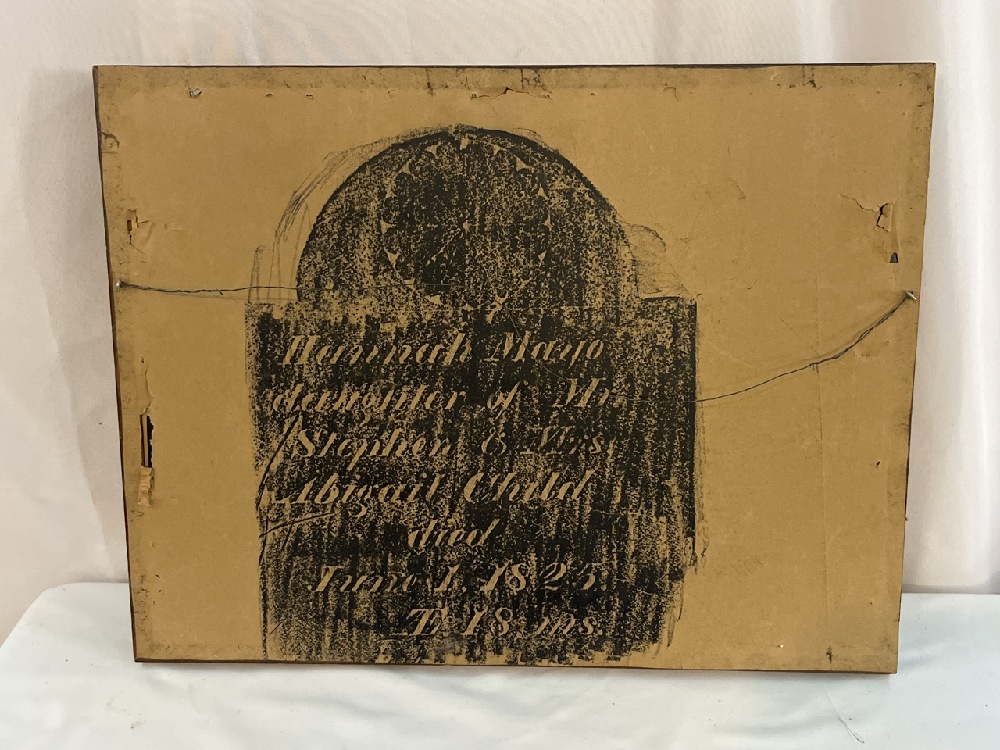 Hannah Mayo
daughter of Mr
Stephen & Mrs.
Abigail Child
died
June 1, 1825
Æ 18 ms.